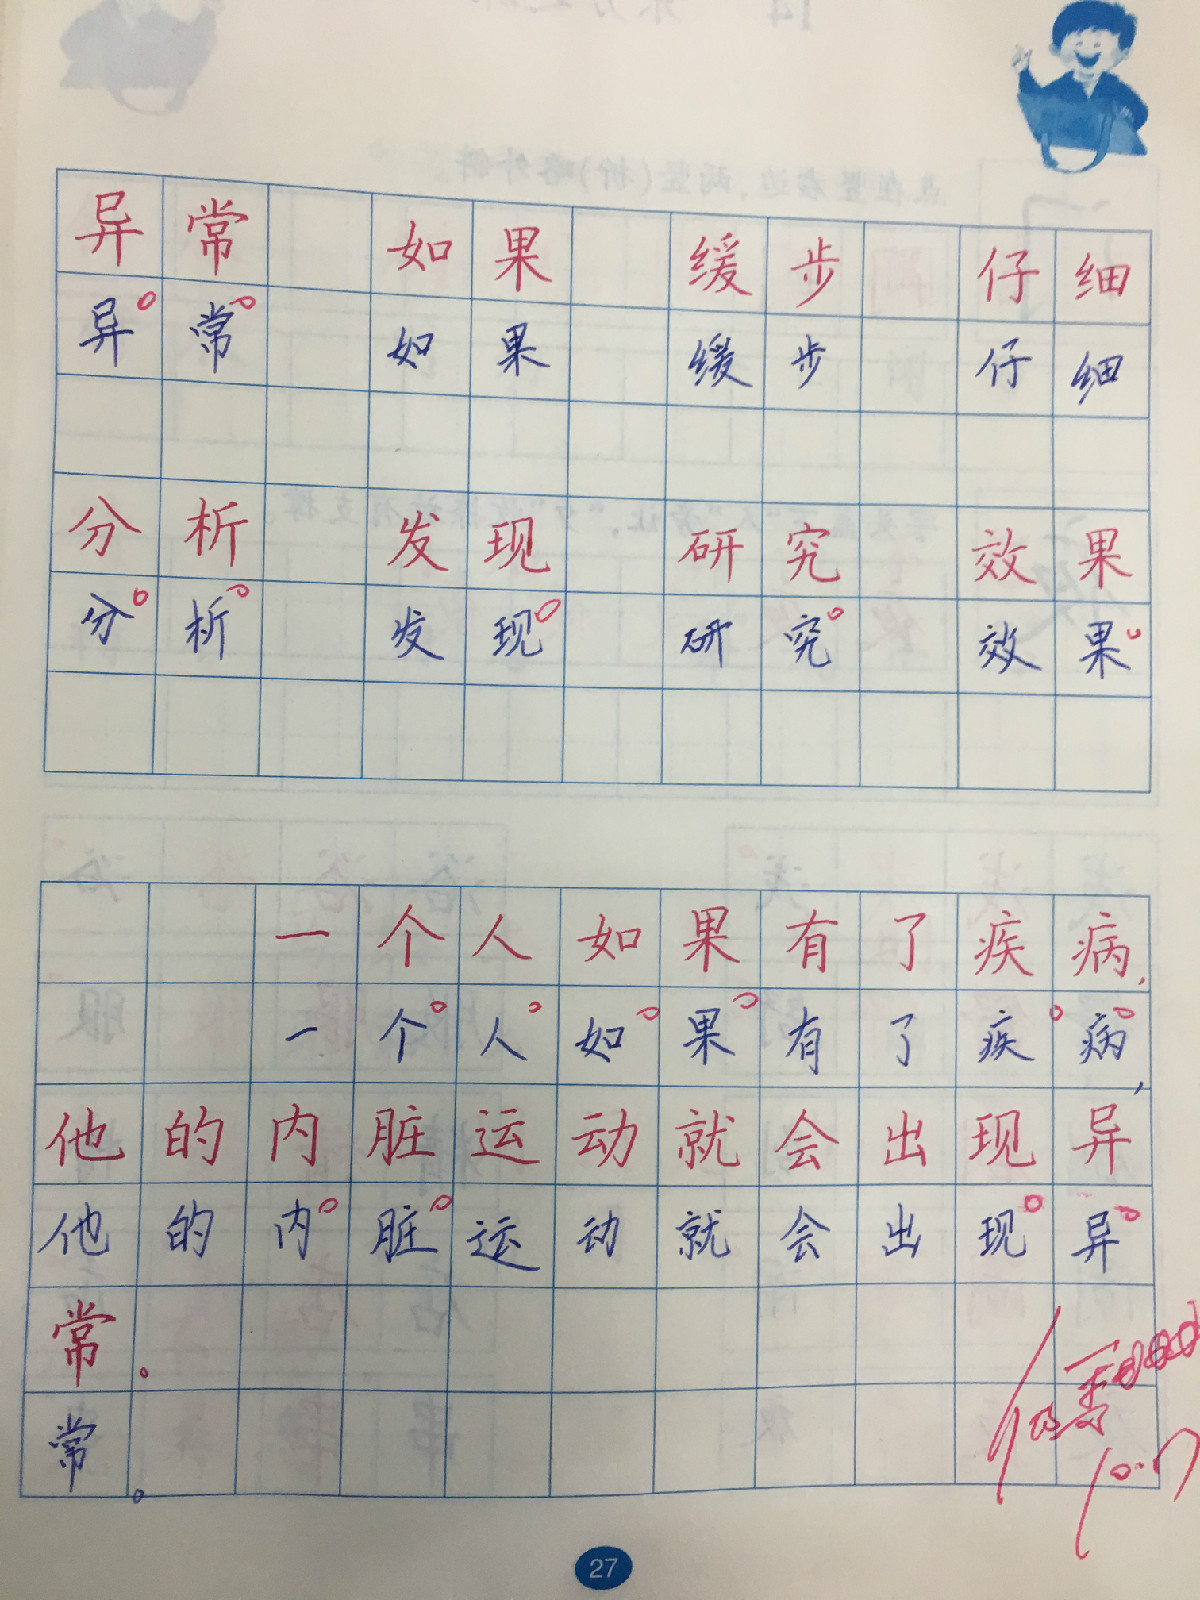 异常 如果 缓步 仔细
异常 如果 缓步 仔细
分析 发现 研究 效果
分析 发现 研究 效果
一个人如果有了疾病,
一个人如果有了疾病,
他的内脏运动就会出现异
他的内脏运动就会出现异
常。
常。
10.7
27